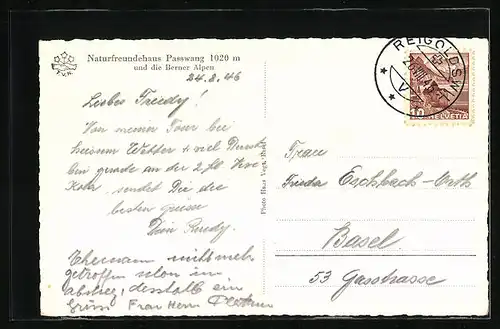 Naturfreundehaus Passwang 1920 m
und die Berner Alpen
T.V.N.
24.8.46
Liebes Friedy!
Von meiner Tour bei
heissem Wetter + viel Durst
bin gerade an der 2. fl.
sendet Dir die
besten grüsse
Dein Ruedy.
Ehemann nicht mehr
getroffen schon im
abstieg, desshalb ein
Gruss Frau Herr
Photo Hans Vogt, Basel
REIGOLDSW
10
HELVETIA
Frau
Frieda Eschbach-Orth
Basel
53 Gasstrasse